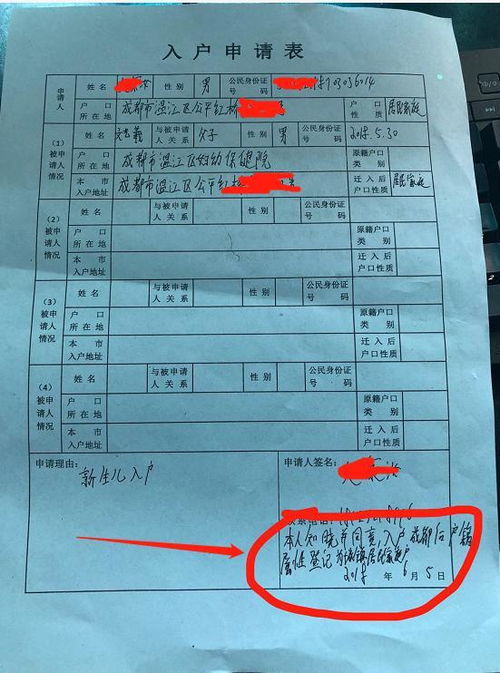 入户申请表
申请人 姓名 性别 男 公民身份证号码
户口所在地 成都市温江区公平红桥 户口性质 居民家庭
(1)被申请人情况 姓名 与被申请人关系 父子 性别 男 公民身份证号码 2018.5.30
户口所在地 成都市温江区妇幼保健院 原籍户口类别
本市入户地址 成都市温江区公平红桥 迁入后户口性质 居民家庭
(2)被申请人情况 姓名 与被申请人关系 性别 公民身份证号码
户口所在地 原籍户口类别
本市入户地址 迁入后户口性质
(3)被申请人情况 姓名 与被申请人关系 性别 公民身份证号码
户口所在地 原籍户口类别
本市入户地址 迁入后户口性质
(4)被申请人情况 姓名 与被申请人关系 性别 公民身份证号码
户口所在地 原籍户口类别
本市入户地址 迁入后户口性质
申请理由: 申请人签名:
新生儿入户
联系电话:
本人知晓并同意,入户成都后户籍
属性登记为城镇居民家庭户
2018年6月5日